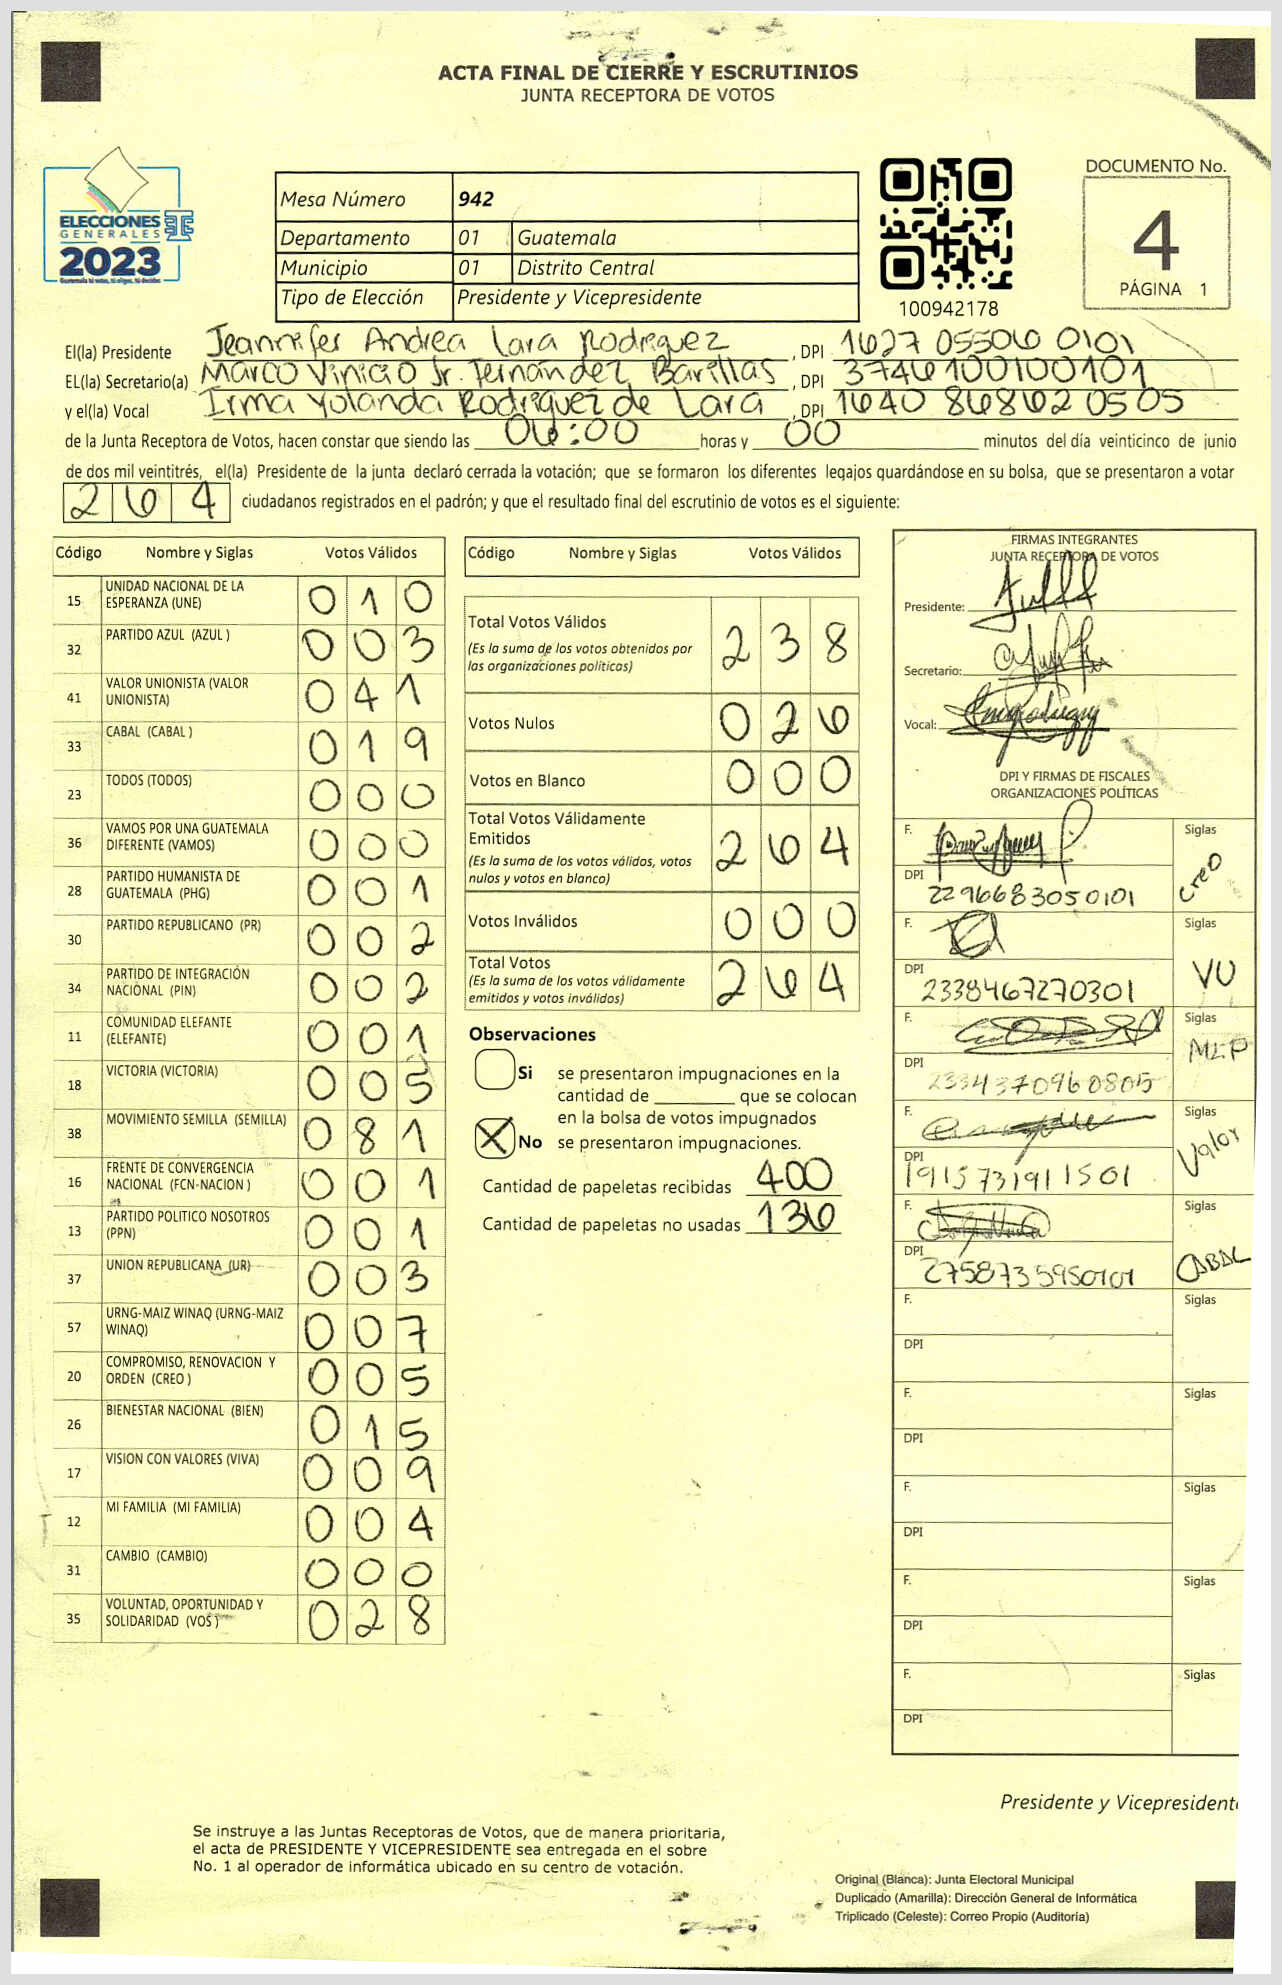 ACTA FINAL DE CIERRE Y ESCRUTINIOS
JUNTA RECEPTORA DE VOTOS
ELECCIONES
GENERALES
2023
Guatemala tú votas, tú eliges, tú decides
Mesa Número 942
Departamento 01 Guatemala
Municipio 01 Distrito Central
Tipo de Elección Presidente y Vicepresidente
100942178
DOCUMENTO No.
4
PÁGINA 1
El(la) Presidente Jeannifer Andrea Lara Rodriguez, DPI 1627 05506 0101
EL(la) Secretario(a) Marco Vinicio Jr. Fernández Barillas, DPI 3746100100101
y el(la) Vocal Irma Yolanda Rodriguez de Lara, DPI 1640 86862 0505
de la Junta Receptora de Votos, hacen constar que siendo las 06:00 horas y 00 minutos del día veinticinco de junio
de dos mil veintitrés, el(la) Presidente de la junta declaró cerrada la votación; que se formaron los diferentes legajos quardándose en su bolsa, que se presentaron a votar
264 ciudadanos registrados en el padrón; y que el resultado final del escrutinio de votos es el siguiente:
Código Nombre y Siglas Votos Válidos
15 UNIDAD NACIONAL DE LA ESPERANZA (UNE) 010
32 PARTIDO AZUL (AZUL ) 003
41 VALOR UNIONISTA (VALOR UNIONISTA) 041
33 CABAL (CABAL ) 019
23 TODOS (TODOS) 000
36 VAMOS POR UNA GUATEMALA DIFERENTE (VAMOS) 000
28 PARTIDO HUMANISTA DE GUATEMALA (PHG) 001
30 PARTIDO REPUBLICANO (PR) 002
34 PARTIDO DE INTEGRACIÓN NACIONAL (PIN) 002
11 COMUNIDAD ELEFANTE (ELEFANTE) 001
18 VICTORIA (VICTORIA) 005
38 MOVIMIENTO SEMILLA (SEMILLA) 081
16 FRENTE DE CONVERGENCIA NACIONAL (FCN-NACION ) 001
13 PARTIDO POLITICO NOSOTROS (PPN) 001
37 UNION REPUBLICANA (UR) 003
57 URNG-MAIZ WINAQ (URNG-MAIZ WINAQ) 007
20 COMPROMISO, RENOVACION Y ORDEN (CREO ) 005
26 BIENESTAR NACIONAL (BIEN) 015
17 VISION CON VALORES (VIVA) 009
12 MI FAMILIA (MI FAMILIA) 004
31 CAMBIO (CAMBIO) 000
35 VOLUNTAD, OPORTUNIDAD Y SOLIDARIDAD (VOS ) 028
Código Nombre y Siglas Votos Válidos
Total Votos Válidos 238
(Es la suma de los votos obtenidos por las organizaciones políticas)
Votos Nulos 026
Votos en Blanco 000
Total Votos Válidamente Emitidos 264
(Es la suma de los votos válidos, votos nulos y votos en blanco)
Votos Inválidos 000
Total Votos 264
(Es la suma de los votos válidamente emitidos y votos inválidos)
Observaciones
Si se presentaron impugnaciones en la
cantidad de ________ que se colocan
en la bolsa de votos impugnados
X No se presentaron impugnaciones.
Cantidad de papeletas recibidas 400
Cantidad de papeletas no usadas 136
FIRMAS INTEGRANTES
JUNTA RECEPTORA DE VOTOS
Presidente:
Secretario:
Vocal:
DPI Y FIRMAS DE FISCALES
ORGANIZACIONES POLÍTICAS
F. Siglas creo
DPI 2296683050101
F. Siglas VU
DPI 2338467270301
F. Siglas MLP
DPI 2334370960805
F. Siglas Valor
DPI 1915731911501
F. Siglas CABAL
DPI 2758735950101
F. Siglas
DPI
F. Siglas
DPI
F. Siglas
DPI
F. Siglas
DPI
F. Siglas
DPI
Presidente y Vicepresidente
Se instruye a las Juntas Receptoras de Votos, que de manera prioritaria,
el acta de PRESIDENTE Y VICEPRESIDENTE sea entregada en el sobre
No. 1 al operador de informática ubicado en su centro de votación.
Original (Blanca): Junta Electoral Municipal
Duplicado (Amarilla): Dirección General de Informática
Triplicado (Celeste): Correo Propio (Auditoría)